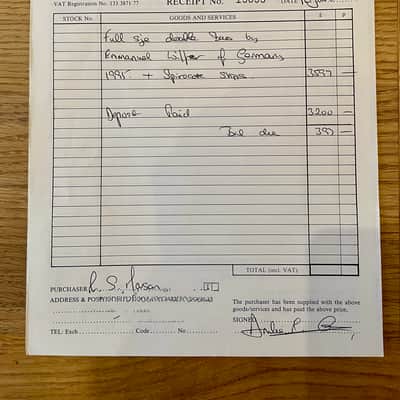 VAT Registration No. 133 3871 77 RECEIPT No. DATE
STOCK No. GOODS AND SERVICES £ P
Full size double bass by
Emmanuel Wilfer of Germany
1995 + Spirocore strings 3597 —
Deposit Paid 3200 —
Bal due 397 —
TOTAL (incl. VAT)
PURCHASER
ADDRESS & POST
The purchaser has been supplied with the above
goods/services and has paid the above price.
TEL: Exch. Code No. SIGNED